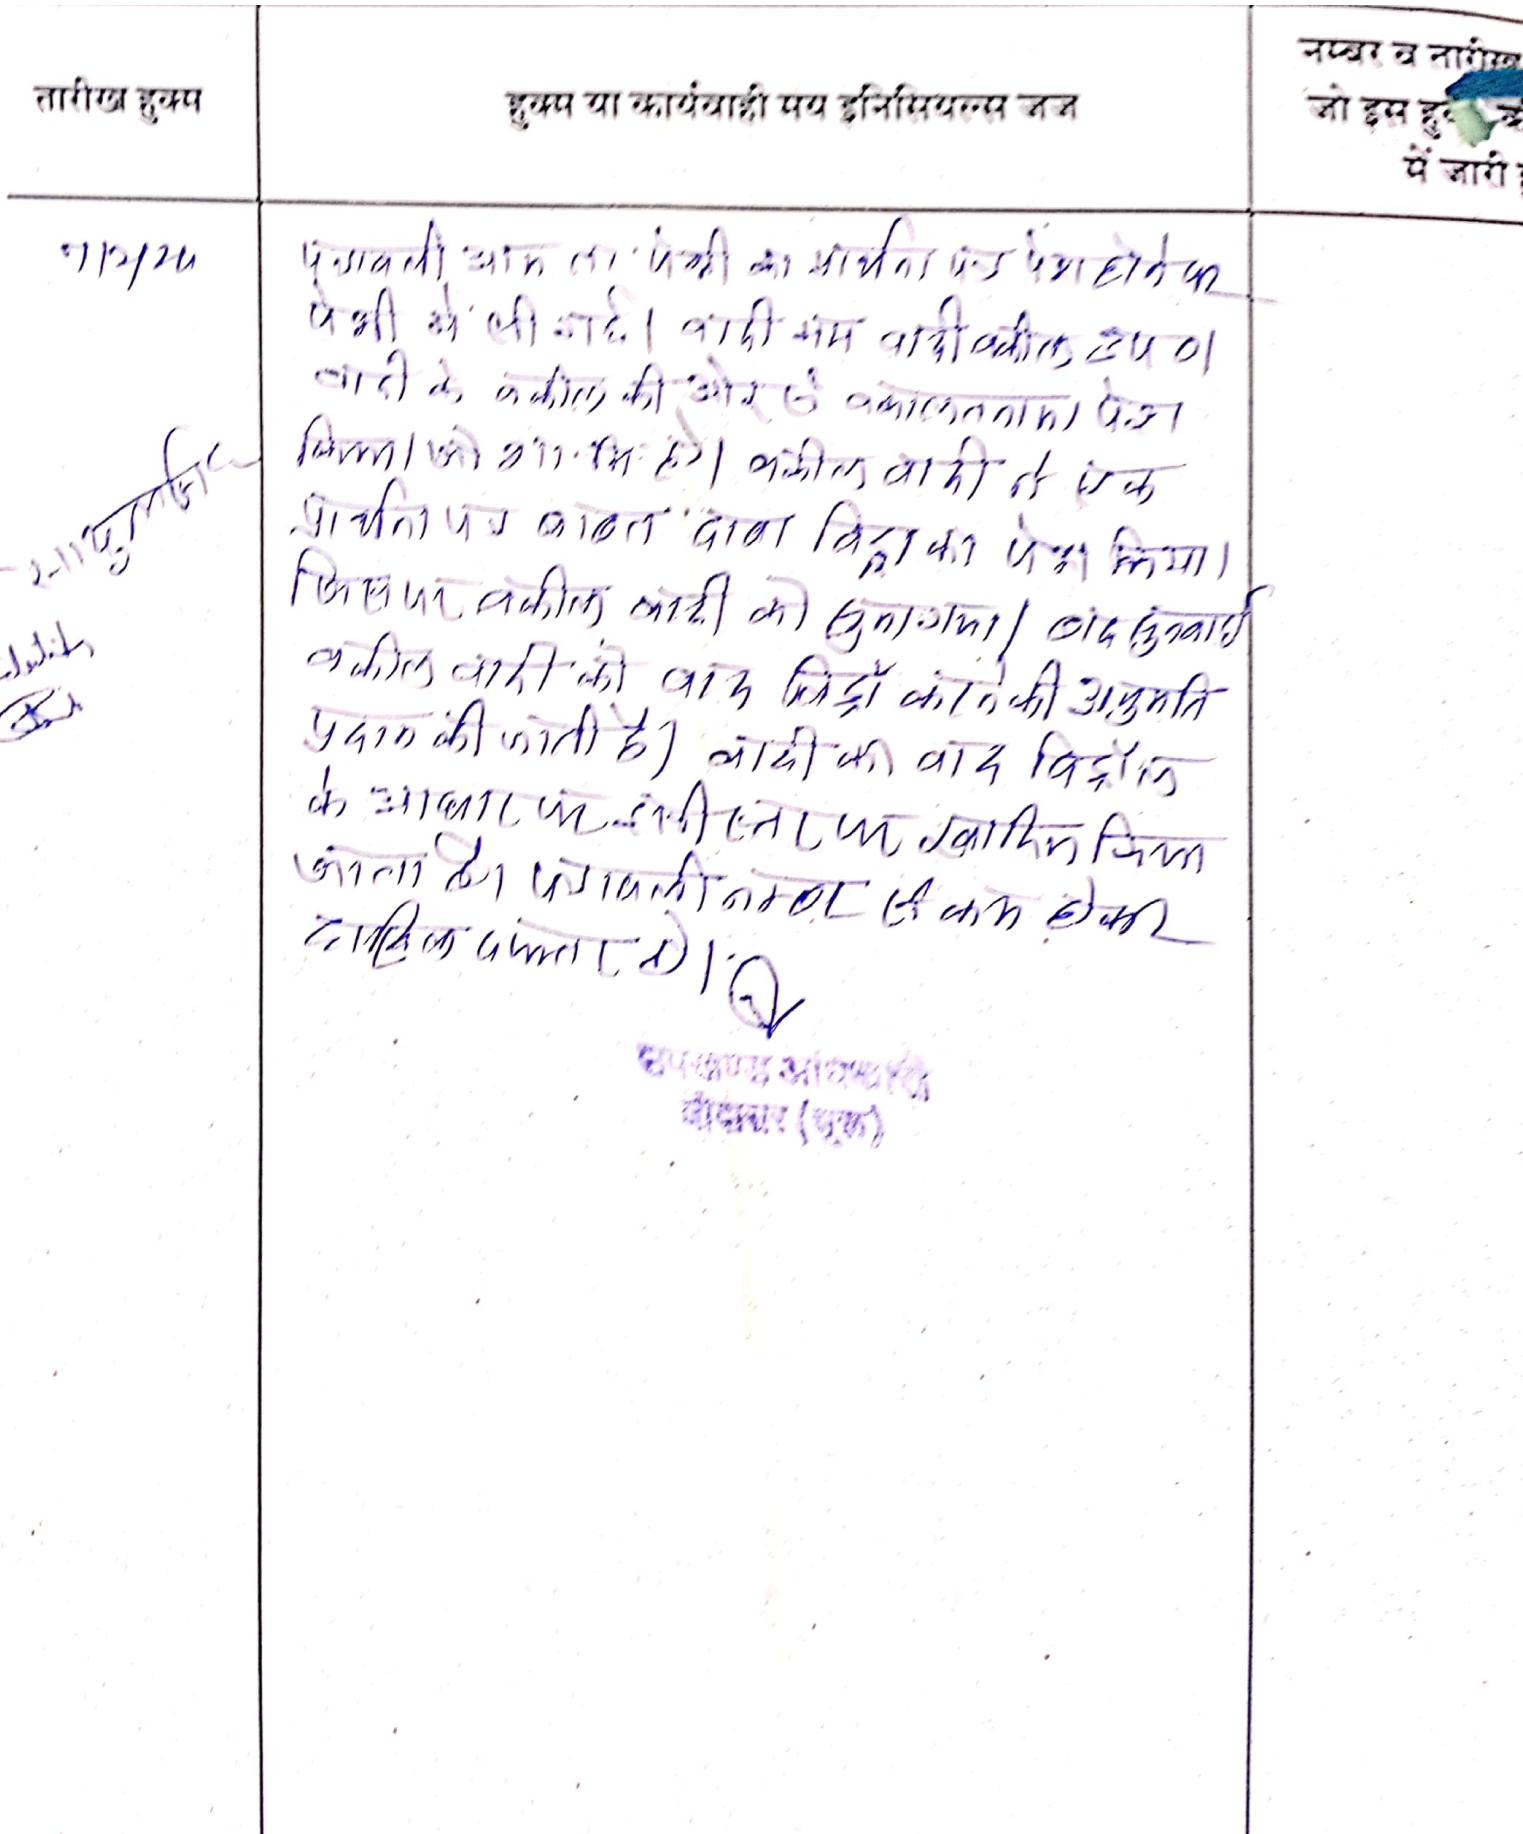 तारीख हुक्म
हुक्म या कार्यवाही मय इनिसियल्स जज
नम्बर व तारीख
जो इस
में जारी
पत्रावली आज ता. पेशी का प्रार्थना पत्र पेश होने पर
पेशी में ली गई। वादी मय वादी वकील उप०।
वादी के वकील की ओर से वकालतनामा पेश
किया। जो शा. मि. हो। वकील वादी ने एक
प्रार्थना पत्र बाबत दावा विड्रा का पेश किया।
जिस पर वकील वादी को सुना गया। बाद सुनवाई
वकील वादी को वाद विड्रॉ करने की अनुमति
प्रदान की जाती है। वादी का वाद विड्रॉल
के आधार पर इसी स्तर पर खारिज किया
जाता है। पत्रावली नम्बर से कम होकर
दाखिल दफ्तर हो।
उपखण्ड अधिकारी
बीदासर (चूरू)